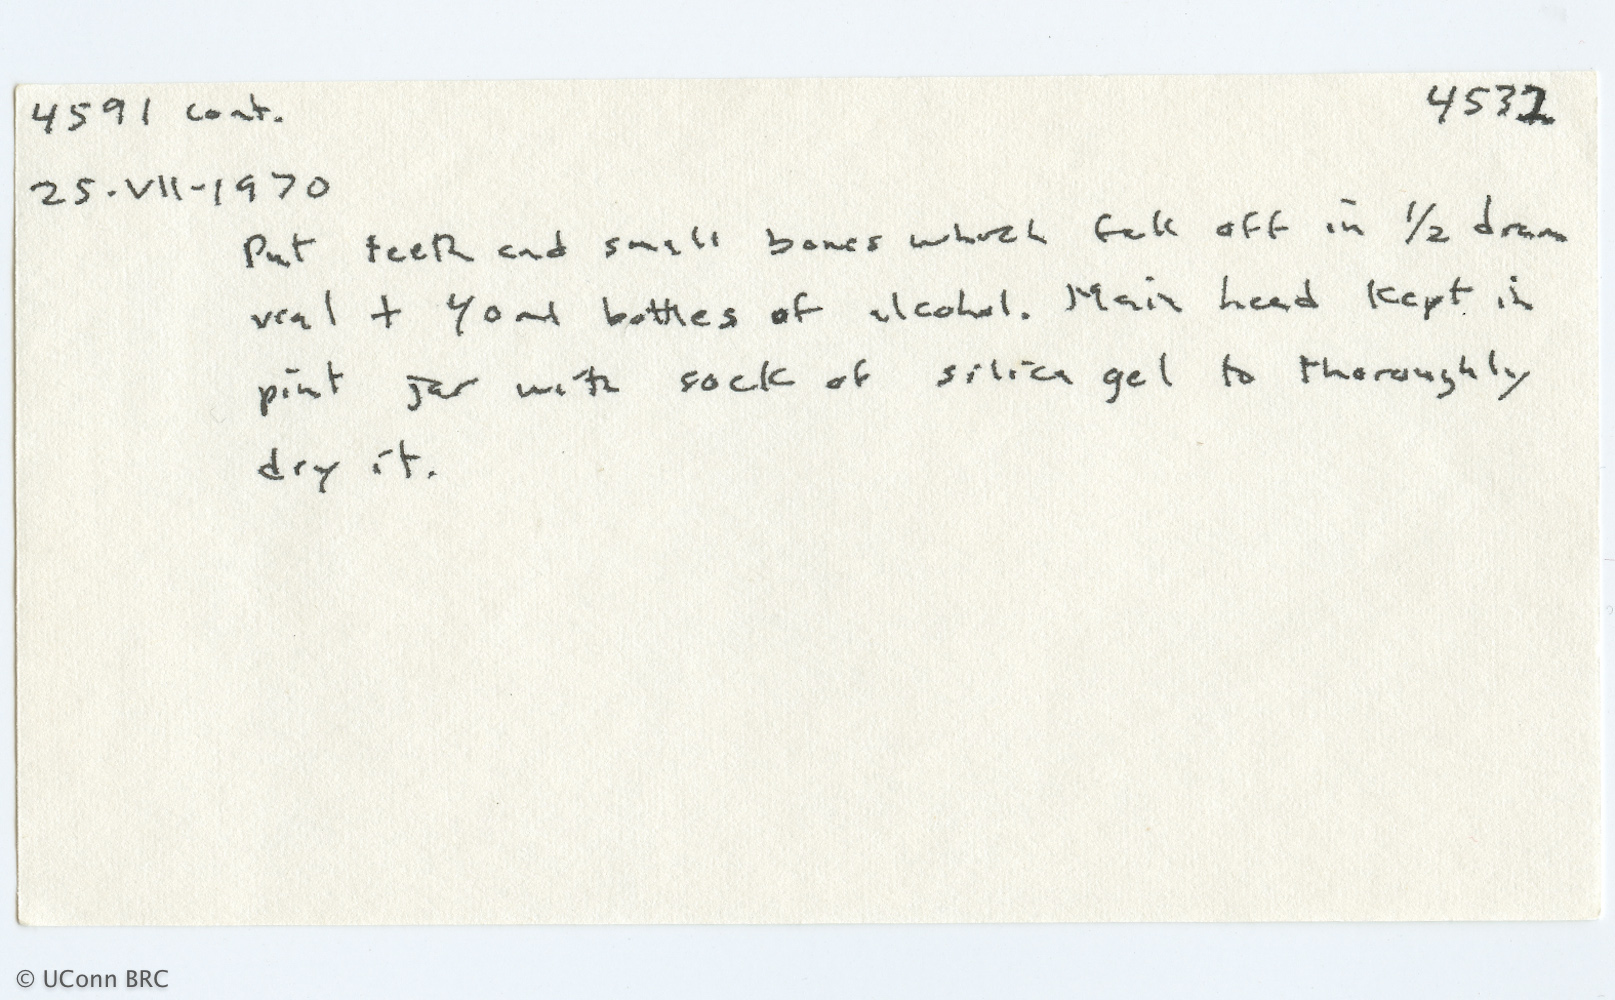 4591 cont. 4532
25-VII-1970
Put teeth and small bones which fell off in 1/2 dram
vial + 40 ml bottles of alcohol. Main head kept in
pint jar with sock of silica gel to thoroughly
dry it.
© UConn BRC